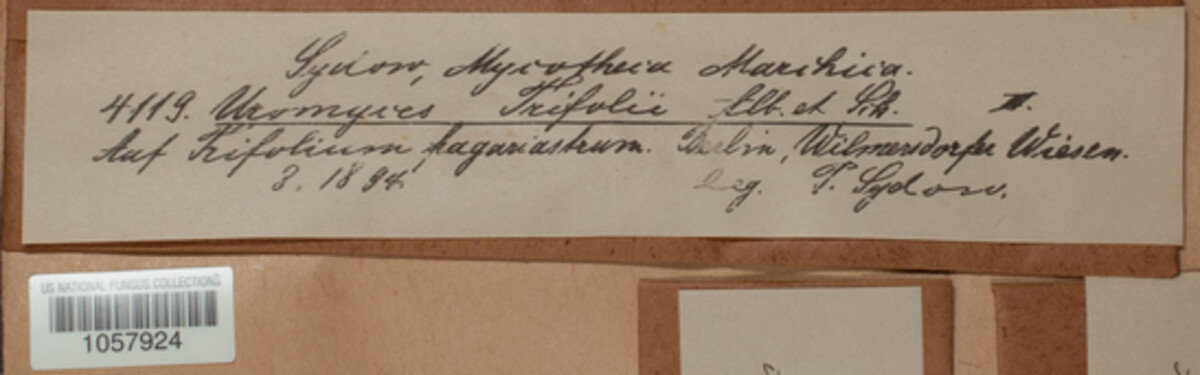 Sydow, Mycotheca Marchica.
4119. Uromyces Trifolii Alb. et Sch. II.
Auf Trifolium fragariastrum. Berlin, Wilmersdorfer Wiesen.
8. 1894 leg. P. Sydow.
US NATIONAL FUNGUS COLLECTIONS
1057924